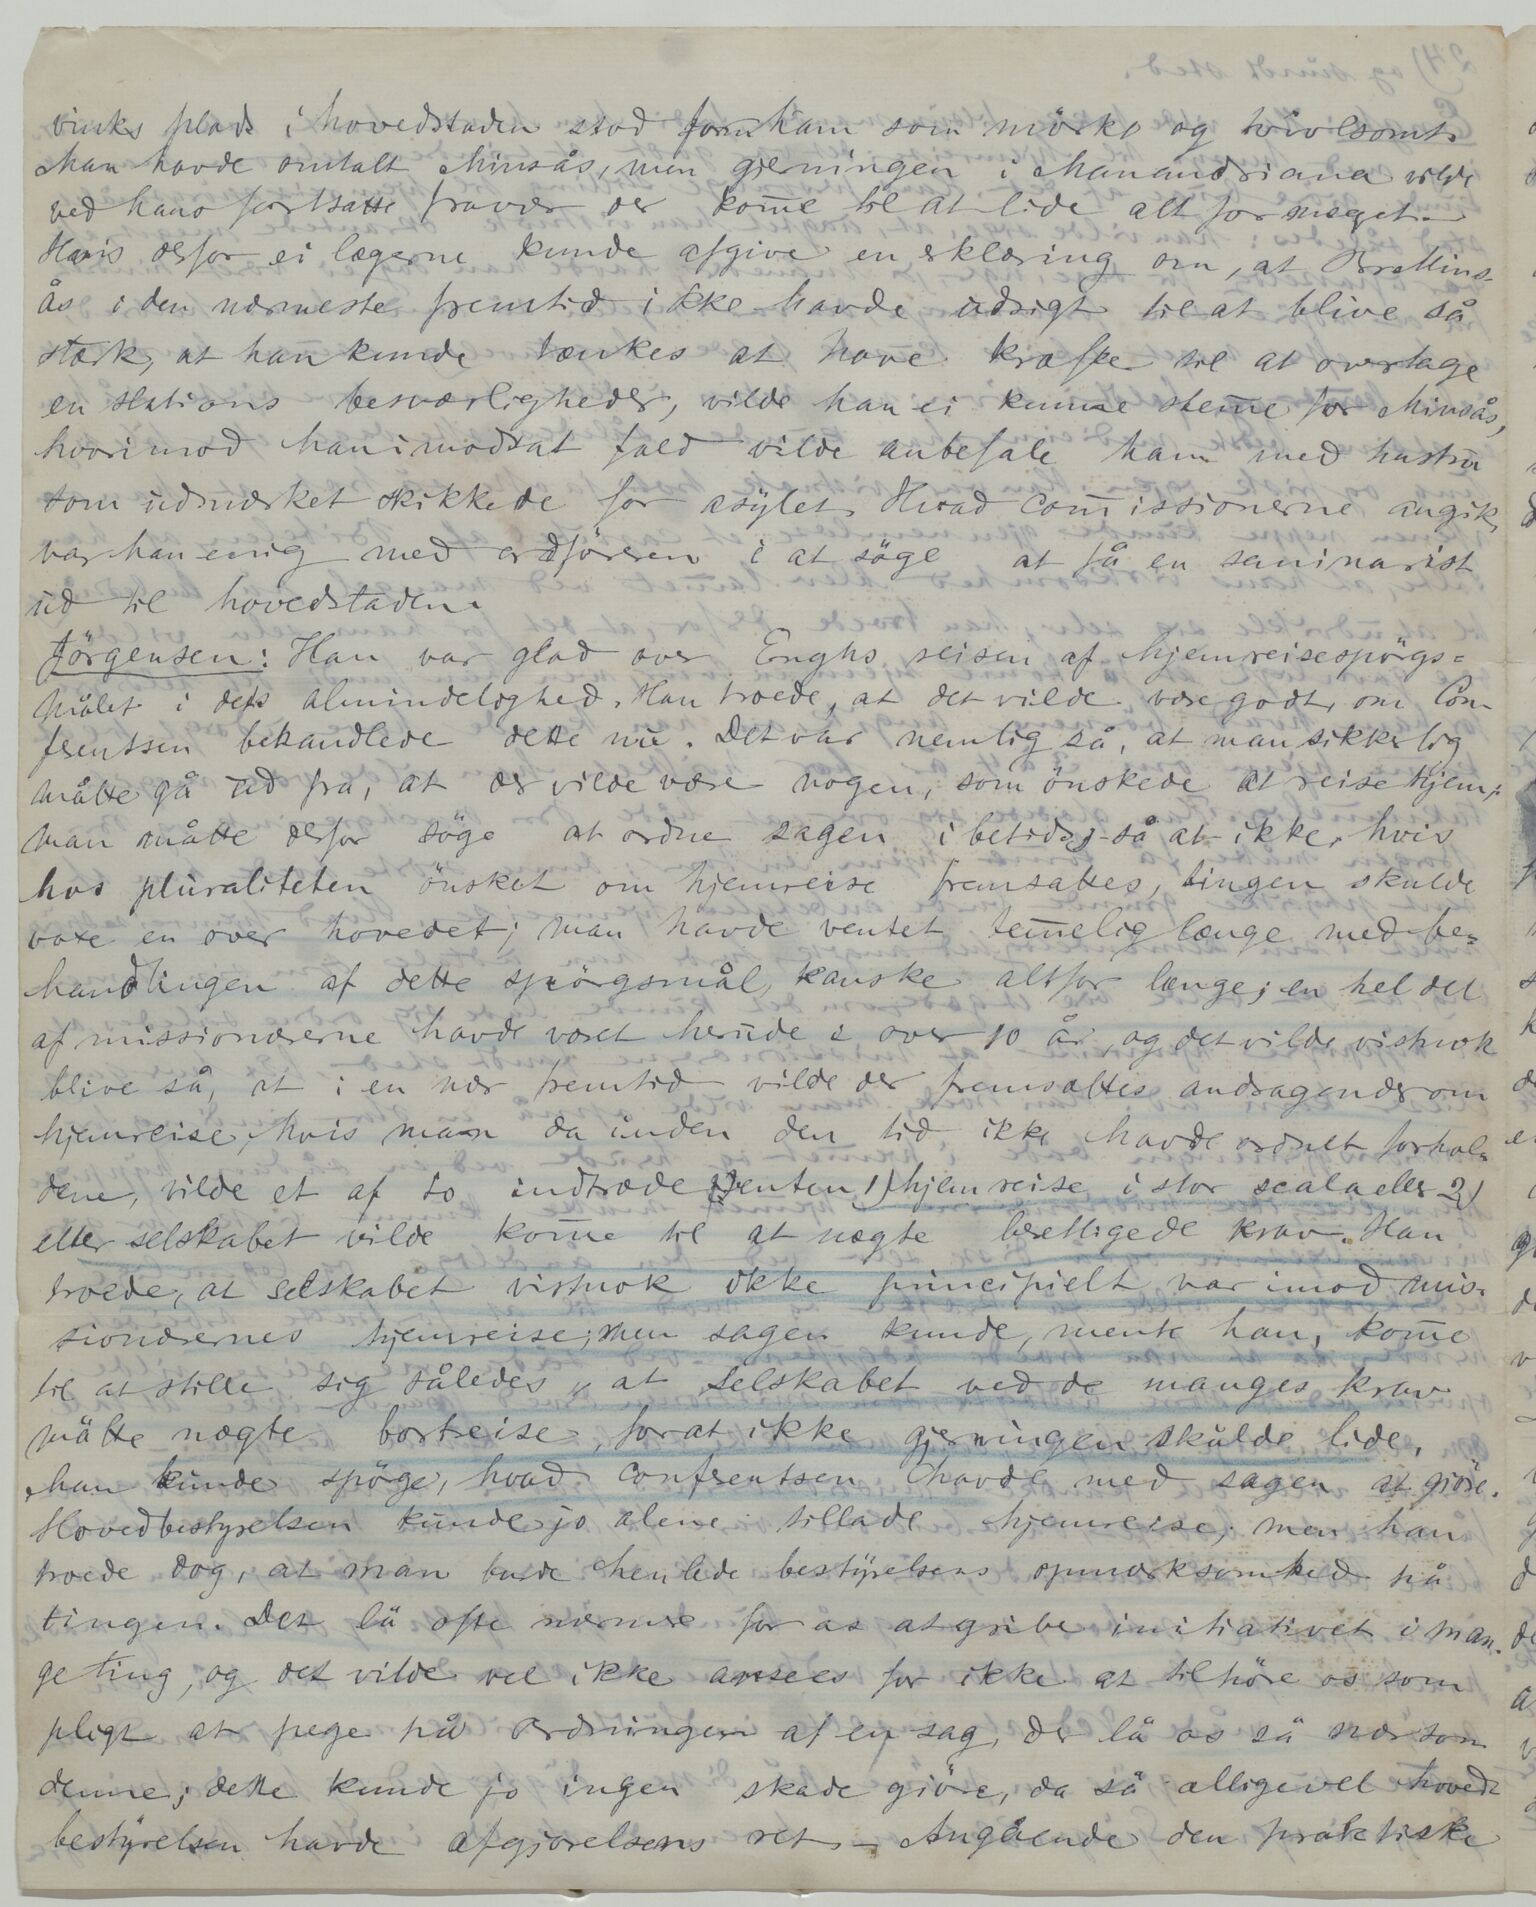 vinks plads i hovedstaden stod for ham som mörkt og tvivlsomt.
Man havde omtalt Minsås, men gjerningen i Manandriana vilde
ved hans fortsatte fravær der kom̄e til at lide alt for meget.
Hvis derfor ei lægerne kunde afgive en erklæring om, at Br. Mins-
ås i den nærmeste fremtid ikke havde udsigt til at blive så
stærk, at han kunde tænkes at have kræfter til at overtage
en stations besværligheder, vilde han ei kunne stem̄e for Minsås,
hvorimod han i modsat fald vilde anbefale ham med hustru
som udmærket skikkede for asylet. Hvad com̄issionerne angik,
var han enig med ordföreren i at söge at få en seminarist
ud til hovedstaden.
Jörgensen: Han var glad over Enghs reisen af hjemreisespörgs=
målet i dets almindelighed. Han troede, at det vilde være godt, om Con-
frentsen behandlede dette nu. Det var nemlig så, at man sikkerlig
måtte gå ud fra, at der vilde være nogen, som önskede at reise hjem;
man måtte derfor söge at ordne sagen i betids, så at ikke, hvis
hos pluraliteten önsket om hjemreise fremsattes, tingen skulde
voxe en over hovedet; man havde ventet tem̄elig længe med be=
handlingen af dette spörgsmål, kanske altfor længe; en hel del
af missionærerne havde været herude i over 10 år, og det vilde vistnok
blive så, at i en nær fremtid vilde der fremsattes andragender om
hjemreise, hvis man da inden den tid ikke havde ordnet forhol=
dene, vilde et af to indtræde: enten 1) hjemreise i stor scala eller 2)
eller selskabet vilde kom̄e til at nægte berettigede krav. Han
troede, at selskabet vistnok ikke principielt var imod mis-
sionærernes hjemreise; men sagen kunde, mente han, kom̄e
til at stille sig således, at selskabet ved de manges krav
måtte nægte bortreise, forat ikke gjerningen skulde lide.
Man kunde spöge, hvad confrentsen havde med sagen at gjöre.
Hovedbestyrelsen kunde jo alene tillade hjemreise; men han
troede dog, at man burde henlede bestyrelsens opmærksomhed på
tingen. Det lå ofte nærmere for os at gribe initiativet i man-
ge ting, og det vilde vel ikke ansees for ikke at tilhöre os som
pligt at pege på ordningen af en sag, der lå os så nær som
denne; dette kunde jo ingen skade gjöre, da så alligevel hoved=
bestyrelsen havde afgjörelsens ret. – Angående den praktiske